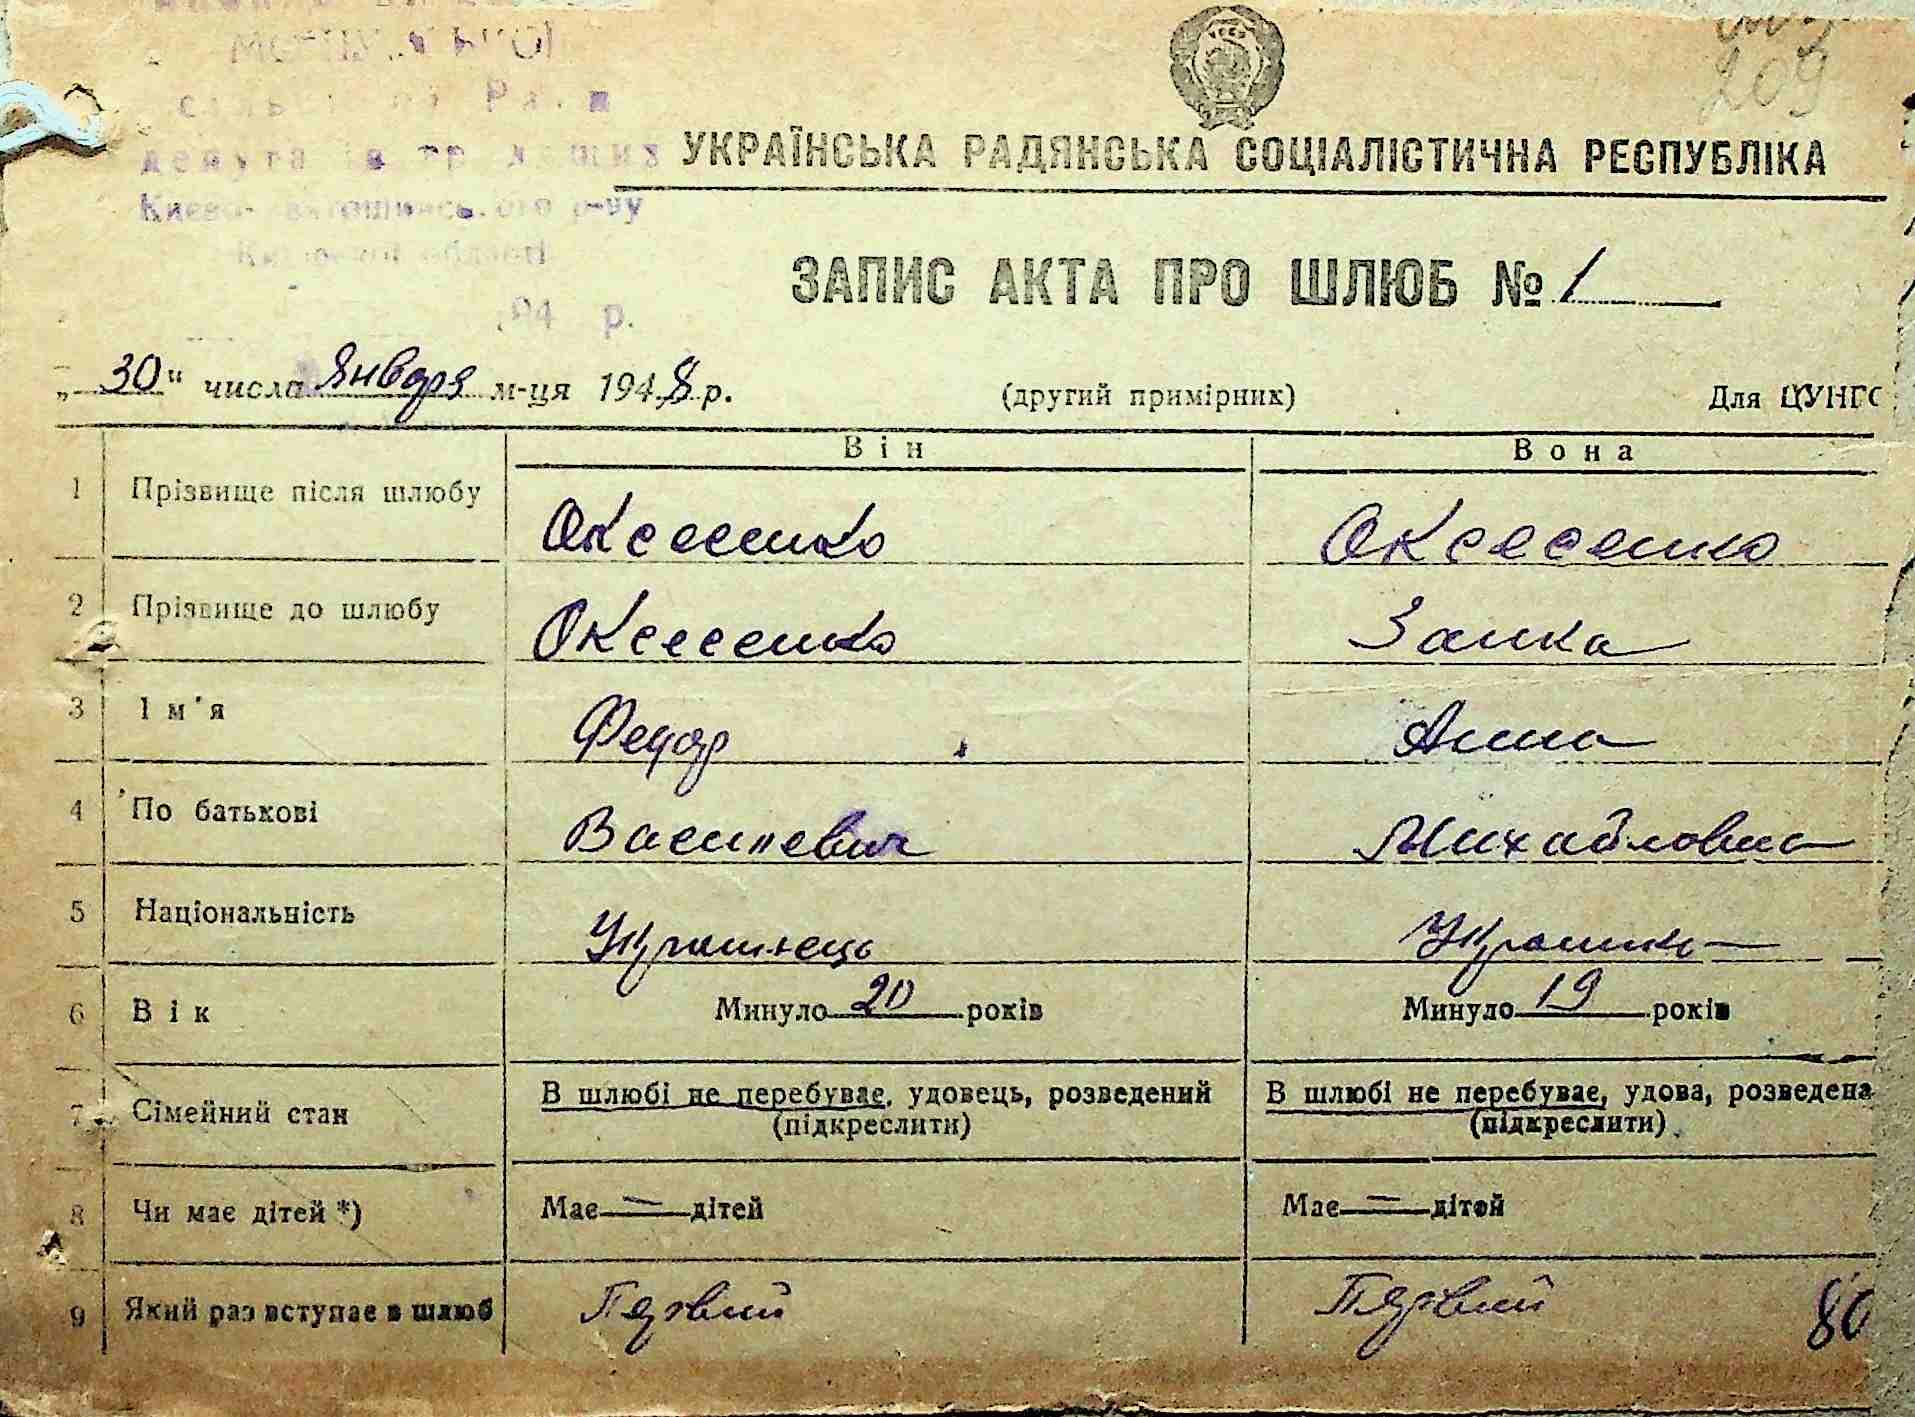 209
депутатів трудящих
Києво-Святошинського р-ну
Київської області
194 р.
УКРАЇНСЬКА РАДЯНСЬКА СОЦІАЛІСТИЧНА РЕСПУБЛІКА
ЗАПИС АКТА ПРО ШЛЮБ № 1
„30“ числа Января м-ця 1948 р. (другий примірник) Для ЦУНГС
Він Вона
1 Прізвище після шлюбу Оксесенко Оксесенко
2 Прізвище до шлюбу Оксесенко Заика
3 Ім'я Федор Анна
4 По батькові Василевич Михайловна
5 Національність Українець Українка
6 Вік Минуло 20 років Минуло 19 років
7 Сімейний стан В шлюбі не перебуває, удовець, розведений В шлюбі не перебуває, удова, розведена
(підкреслити) (підкреслити)
8 Чи має дітей *) Має = дітей Має = дітей
9 Який раз вступає в шлюб Первий Первий
80